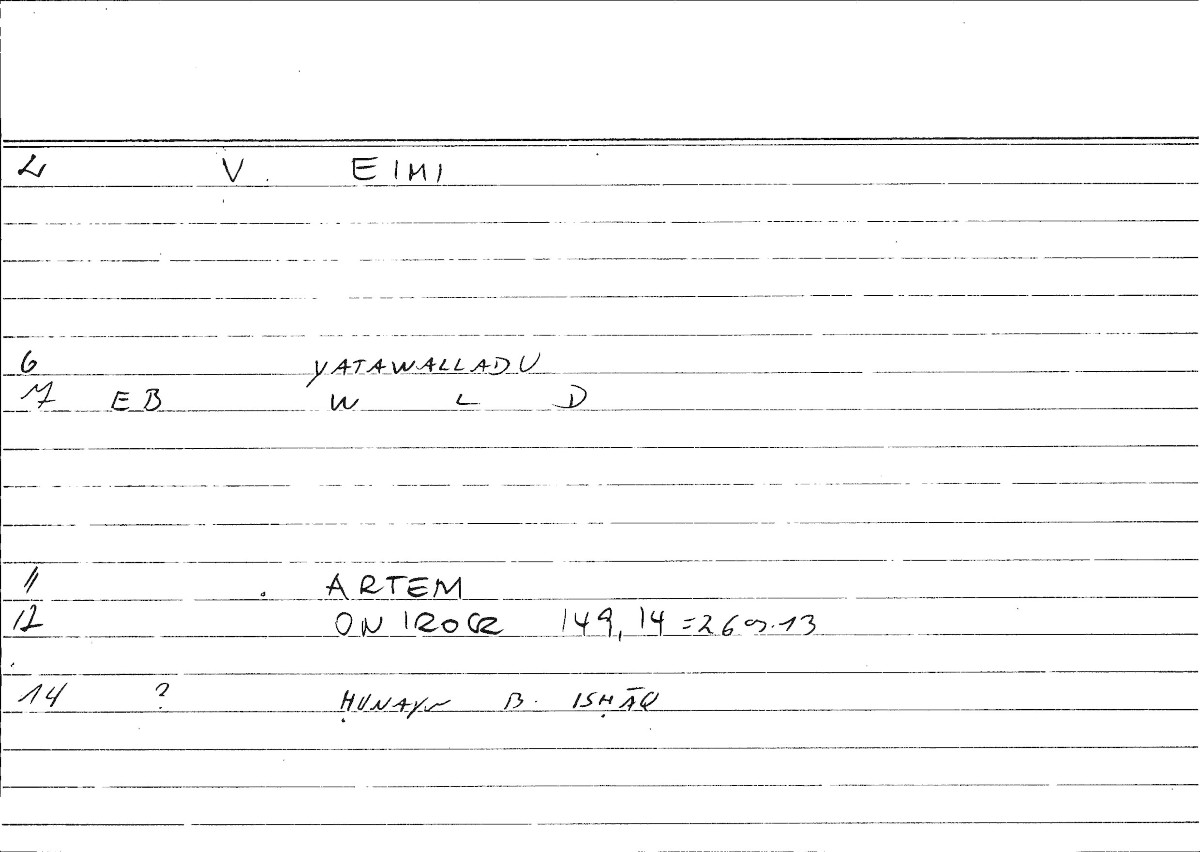 2 V. EIMI
6 YATAWALLADU
7 EB W L D
11 . ARTEM
12 ONIROCR 149, 14 =
14 ? ḤUNAYN B. ISḤĀQ